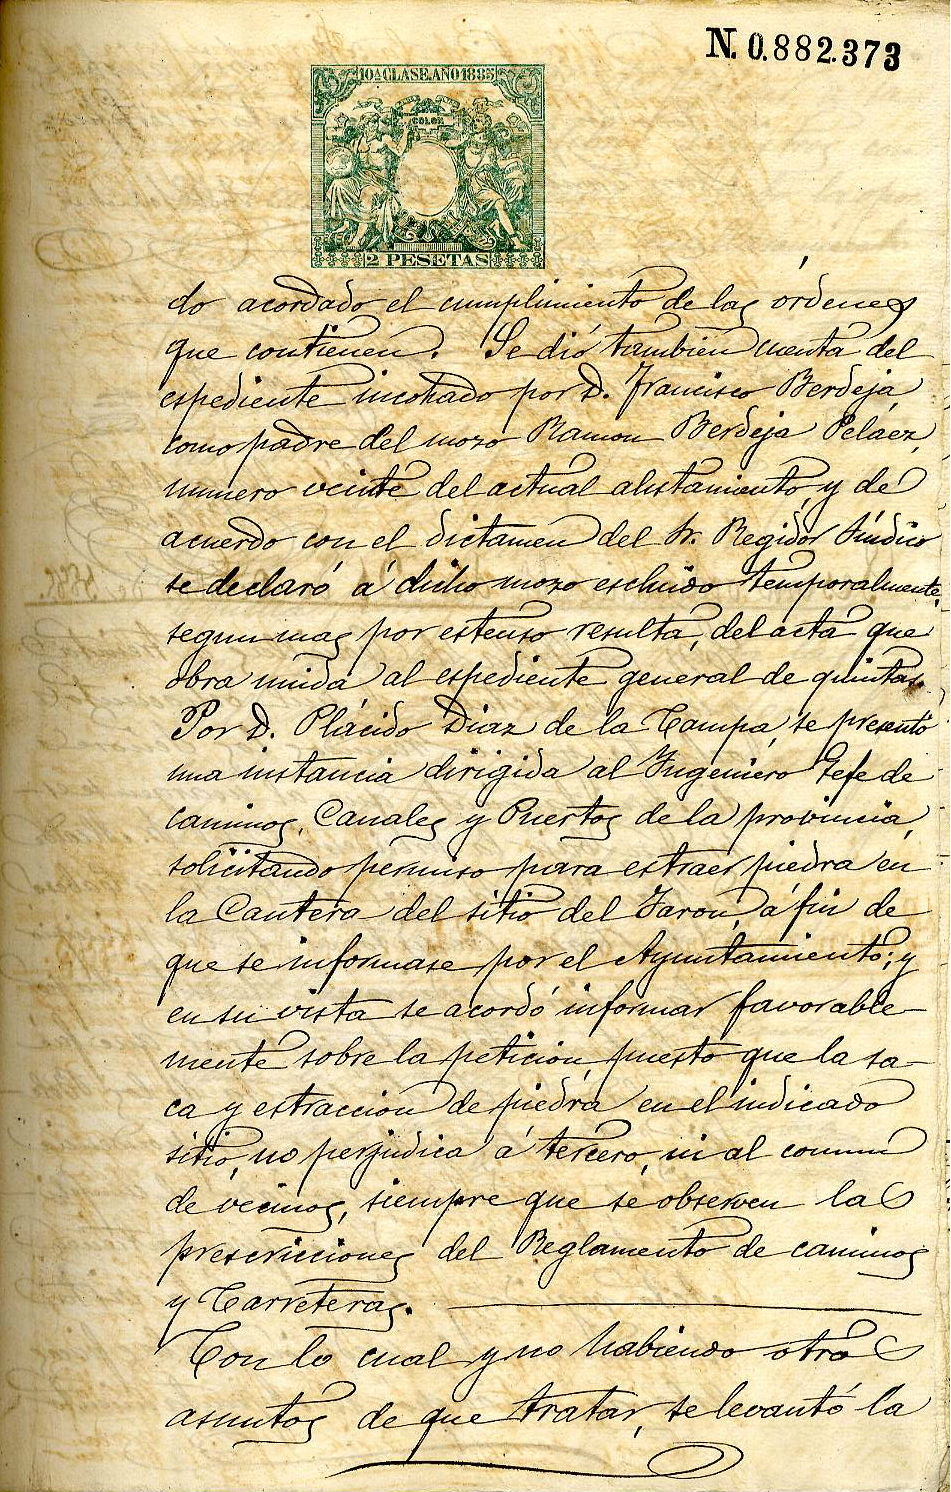 N. 0.882.373
10ª CLASE. AÑO 1885
COLON
2 PESETAS
do acordado el cumplimiento de las órdenes
que contienen. Se dió tambien cuenta del
espediente incohado por D. Francisco Berdeja,
como padre del mozo Ramon Berdeja Pelaez,
numero veinte del actual alistamiento, y de
acuerdo con el dictamen del Sr. Regidor Síndico
se declaró á dicho mozo escluido temporalmente,
segun mas por estenso resulta, del acta que
obra unida al espediente general de quintas.
Por D. Plácido Diaz de la Campa, se presentó
una instancia dirigida al Ingeniero Gefe de
caminos, Canales y Puertos de la provincia,
solicitando permiso para estraer piedra en
la Cantera del sitio del Jaron, á fin de
que se informase por el Ayuntamiento; y
en su vista se acordó informar favorable-
mente sobre la peticion, puesto que la sa-
ca y estraccion de piedra en el indicado
sitio, no perjudica á tercero, ni al comun
de vecinos, siempre que se observen las
prescricciones del Reglamento de caminos
y Carreteras.
Con lo cual y no habiendo otros
asuntos de que tratar, se levantó la